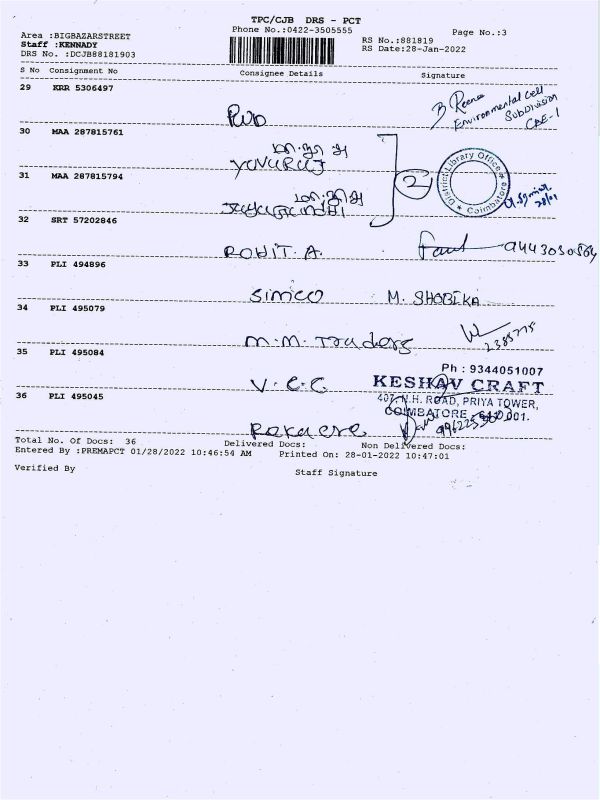 TPC/CJB DRS - PCT
Phone No.:0422-3505555
Page No.:3
Area :BIGBAZARSTREET
Staff :KENNADY
DRS No. :DCJB88181903
RS No.:881819
RS Date:28-Jan-2022
S No Consignment No Consignee Details Signature
29 KRR 5306497
PWD
B Reena
Environmental Cell
Subdivision
CBE-1
30 MAA 287815761
மா.நூ.அ
YUVURAJ
31 MAA 287815794
மா.நூ.அ
2
District Library Office
Coimbatore
28/01
32 SRT 57202846
ROHIT. A.
33 PLI 494896
Simco M. SHOBIKA
34 PLI 495079
M.M. Traders
2385775
35 PLI 495084
V.C.C
Ph : 9344051007
KESHAV CRAFT
407, N.H. ROAD, PRIYA TOWER,
COIMBATORE - 641 001.
36 PLI 495045
Total No. Of Docs: 36 Delivered Docs: Non Delivered Docs:
Entered By :PREMAPCT 01/28/2022 10:46:54 AM Printed On: 28-01-2022 10:47:01
Verified By Staff Signature